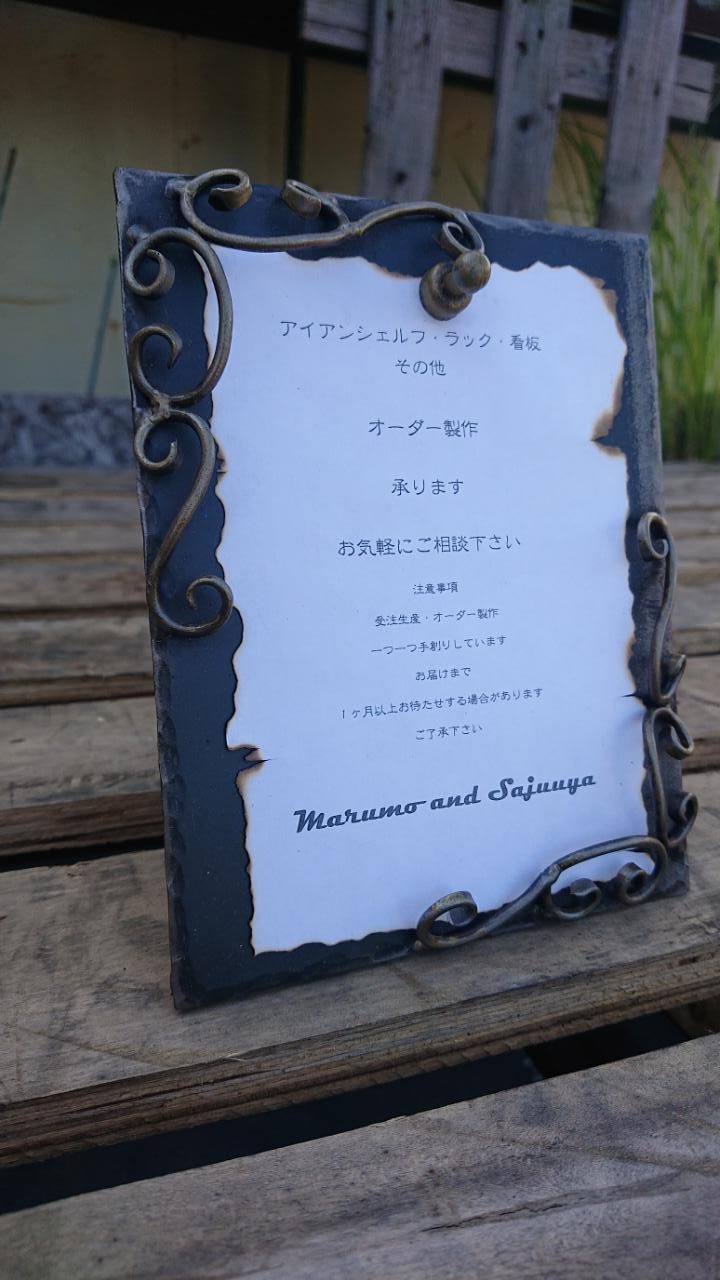 アイアンシェルフ・ラック・看板
その他
オーダー製作
承ります
お気軽にご相談下さい
注意事項
受注生産・オーダー製作
一つ一つ手創りしています
お届けまで
1ヶ月以上お待たせする場合があります
ご了承下さい
Marumo and Sajuuya